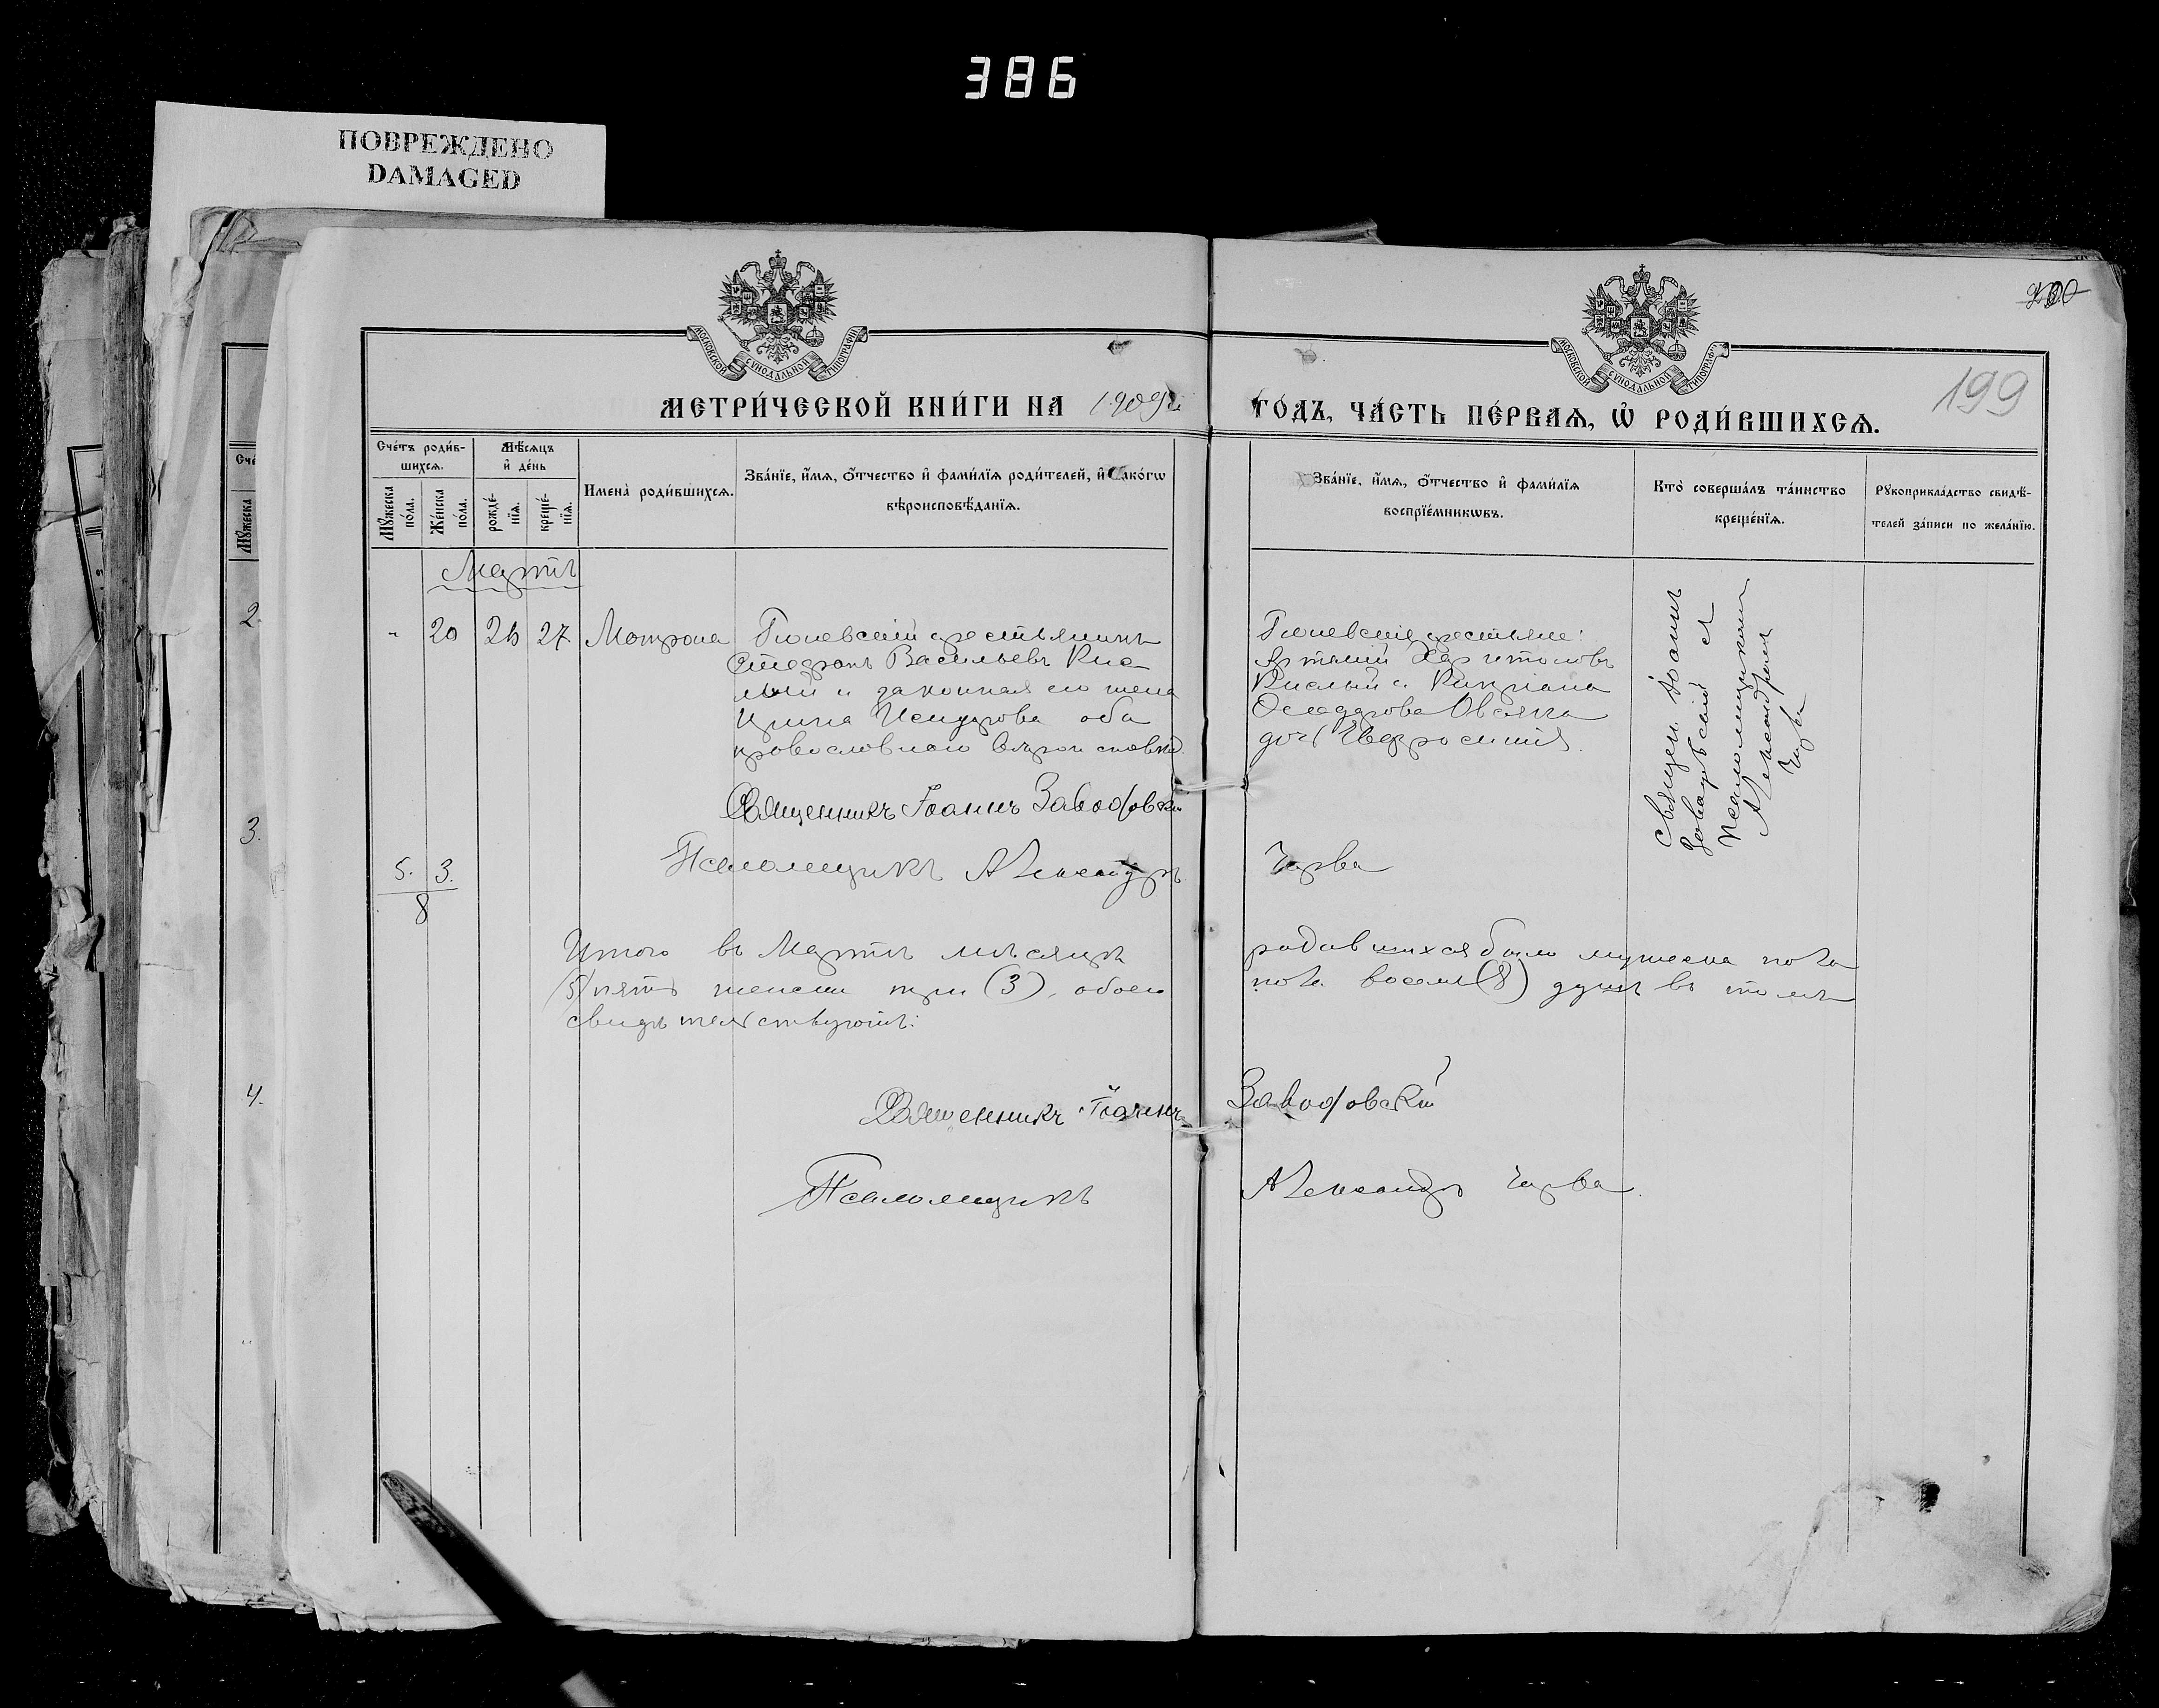 386
ПОВРЕЖДЕНО
DAMAGED
200
199
МОСКОВСКОЙ СѴНОДАЛЬНОЙ ТИПОГРАФІИ
МОСКОВСКОЙ СѴНОДАЛЬНОЙ ТИПОГРАФІИ
МЕТРИ́ЧЕСКОЙ КНИ́ГИ НА 1909й ГО́ДЪ, ЧА́СТЬ ПЕ́РВАѦ, Ѡ҆ РОДИ́ВШИХСѦ.
Сче́тъ роди́в-
шихсѧ.
Мꙋ́жеска
по́ла.
Же́нска
по́ла.
Мѣ́сѧцъ
и҆ де́нь
рожде́-
нїѧ.
креще́-
нїѧ.
Имена̀ роди́вшихсѧ.
Зва́нїе, и҆́мѧ, ѻ҆́тчество и҆ фами́лїѧ роди́телей, и҆ како́гѡ
вѣроисповѣ́данїѧ.
Зва́нїе, и҆́мѧ, ѻ҆́тчество и҆ фами́лїѧ
воспрїе́мникѡвъ.
Кто̀ соверша́лъ та́инство
креще́нїѧ.
Рꙋкоприкла́дство свидѣ́-
телей за́писи по жела́нїю.
Сче
Мꙋ́жеска
2.
3.
4.
Мартъ
- 20 26 27. Мотрона
крестьянинъ
Васильевъ Кис
лый и законная его жена
Ирина Исидорова оба
православнаго вѣроисповѣд.
крестьяне:
Харитоновъ
Кислый и
Овсяка
дочь Евфросинія.
Священ. Іоаннъ
Завадовскій и
псаломщикомъ
Александромъ
Чирва
Священникъ Іоаннъ Завадовскій
Псаломщикъ Александръ Чирва
5. 3.
8
Итого въ Мартѣ мѣсяцѣ родившихся было мужеска пола
(5) пять женска три (3), обоего пола восемь (8) душъ въ томъ
свидѣтельствуютъ:
Священникъ Іоаннъ Завадовскій
Псаломщикъ Александръ Чирва.